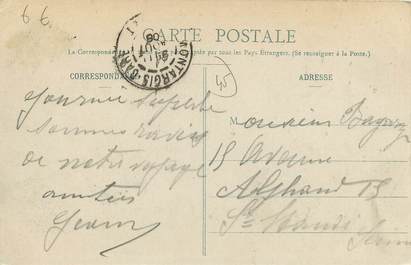 6 6.
CARTE POSTALE
La Correspondance par tous les Pays Étrangers. (Se renseigner à la Poste)
MONTARGIS-GARE
CORRESPONDANCE
ADRESSE
45
Journée superbe
sommes ravies
de notre voyage
amitiés
Monsieur
15 Avenue
Alphand 15
St Mandé
Seine